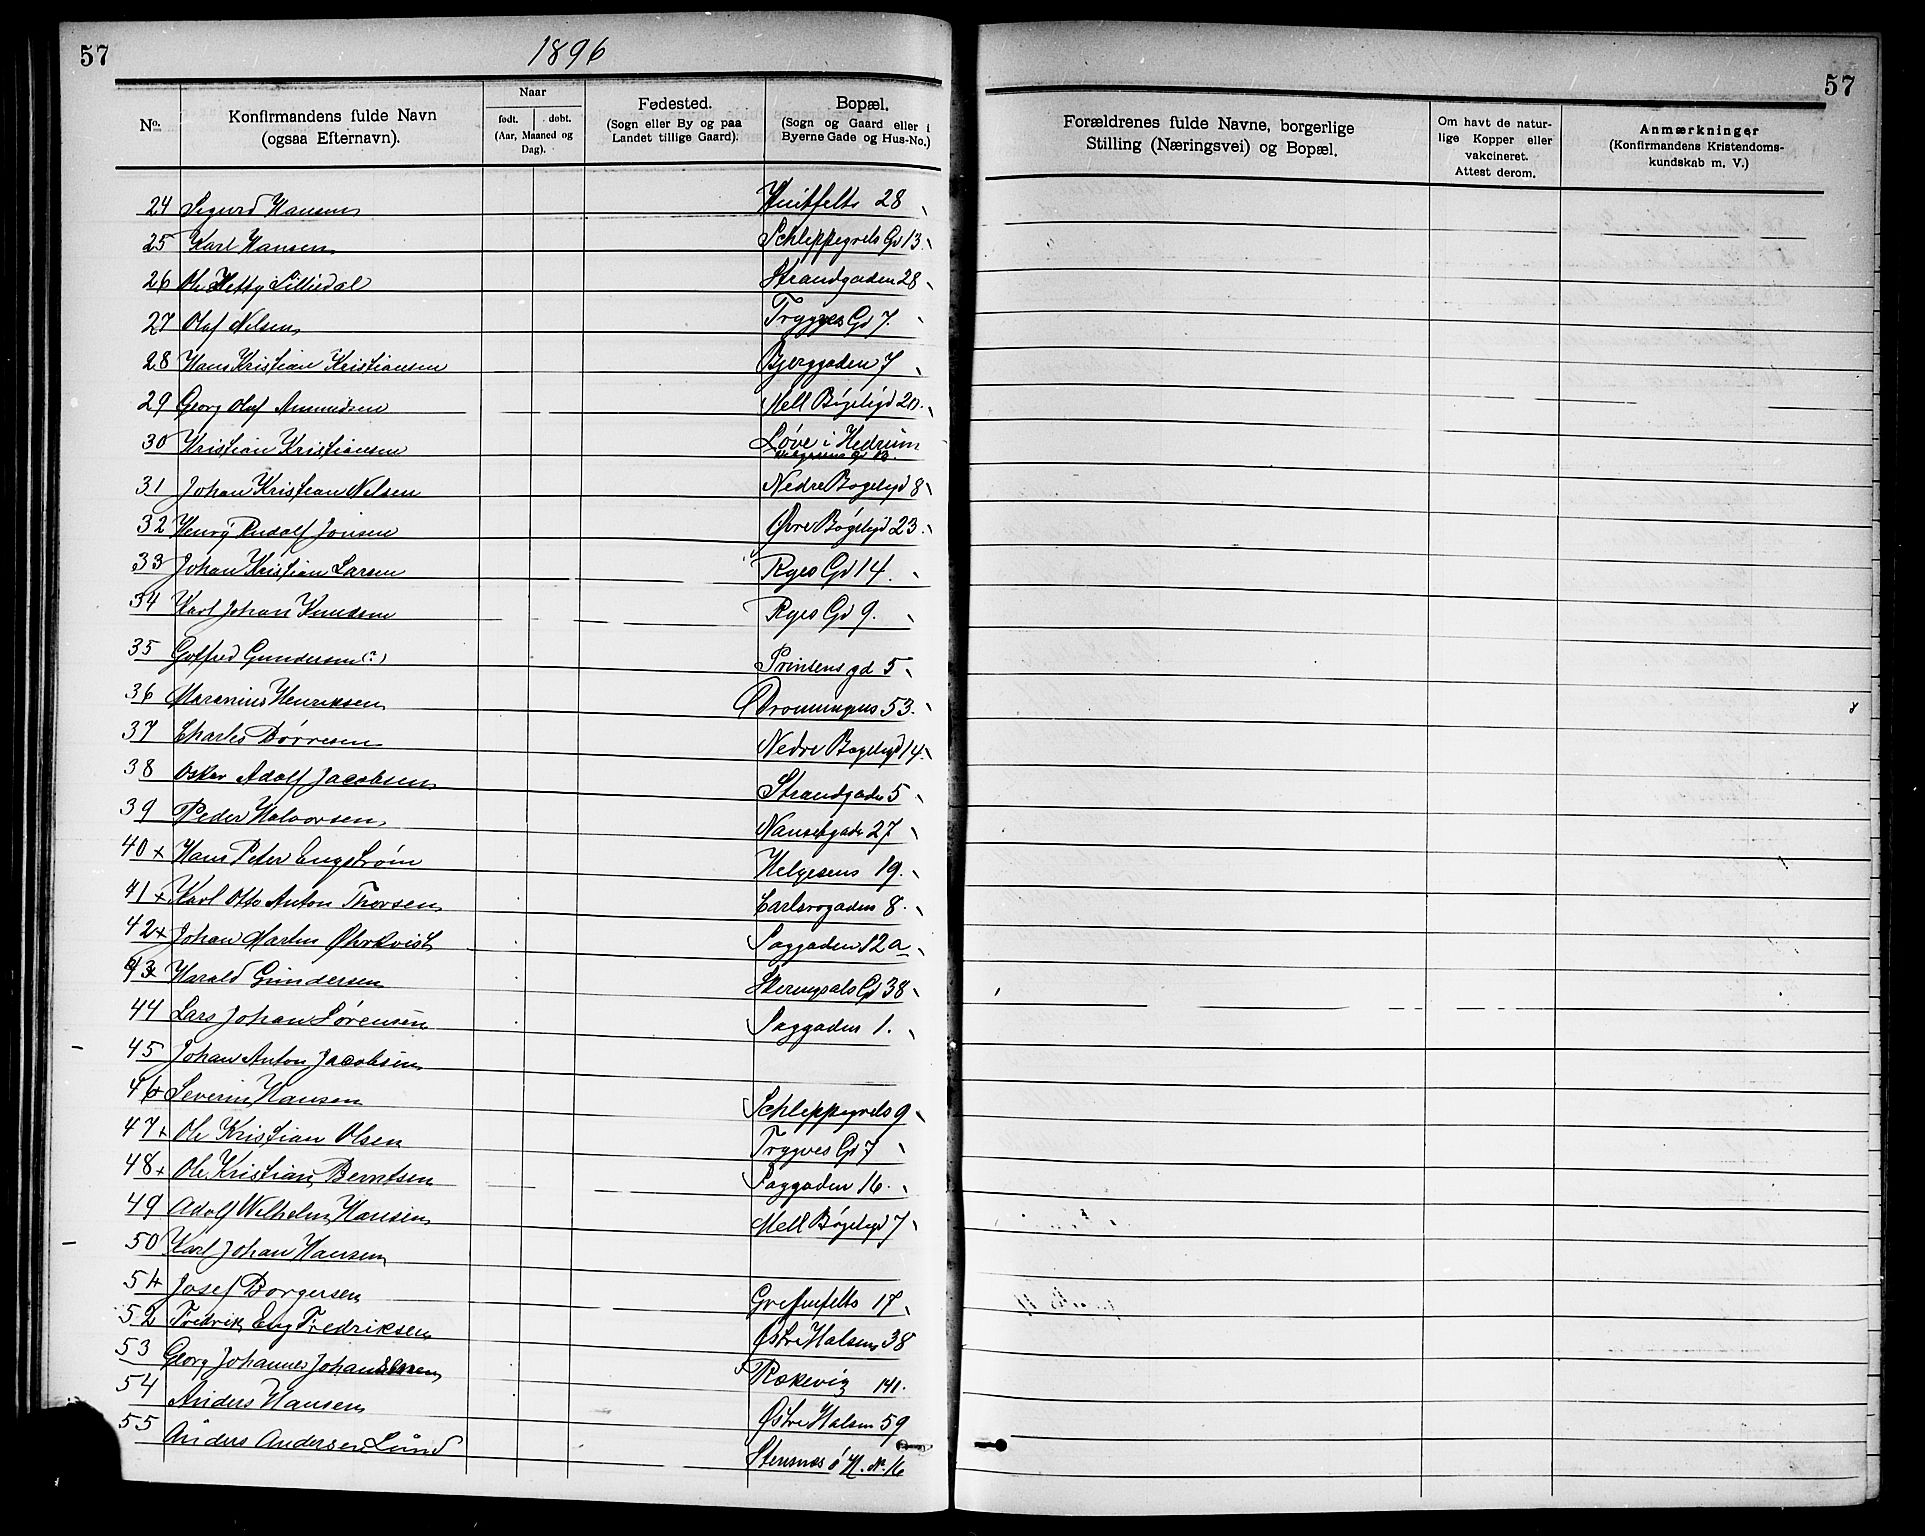 57
1896
No.
Konfirmandens fulde Navn
(ogsaa Efternavn).
Naar
født.
døbt.
(Aar, Maaned og
Dag).
Fødested.
(Sogn eller By og paa
Landet tillige Gaard).
Bopæl.
(Sogn og Gaard eller i
Byerne Gade og Hus-No.)
24 Sigurd Hansen Huitfelts 28
25 Karl Hansen Schleppegrels Gd 13
26 Ole Lilliedal Strandgaden 28
27 Olaf Nilsen Trygves Gd 7
28 Hans Kristian Kristiansen Bjerggaden 7
29 Georg Olaf Amundsen Mell Bøgeligd 20
30 Kristian Kristiansen Løve i Hedrum
31 Johan Kristian Nilsen Nedre Bøgeligd 8
32 Henry Rudolf Jonsen Øvre Bøgeligd 23
33 Johan Kristian Larsen Ryes Gd 14
34 Karl Johan Knudsen Ryes Gd 9
35 Gotfred Gundersen (?) Prinsens gd 5
36 Maranius Henriksen Dronningens 53
37 Charles Børresen Nedre Bøgeligd 14
38 Oskar Adolf Jacobsen Strandgaden 5
39 Peder Halvorsen Nansetgade 27
40 x Hans Peter Engstrøm Helgesens 19
41 x Karl Otto Anton Thorsen Carlsrogaden 8
42 x Johan Martin Øhrkvist Saggaden 12a
43 x Harald Gundersen Skeringsals Gd 38
44 Lars Johan Sørensen Saggaden 1
45 Johan Anton Jacobsen
46 x Severin Hansen Schleppegrels 9
47 x Ole Kristian Olsen Trygves Gd 7
48 x Ole Kristian Berntsen Saggaden 16
49 Adolf Wilhelm Hansen Mell Bøgeligd 7
50 Karl Johan Hansen
51 Josef Borgersen Griffenfelts 17
52 Fredrik Eug Fredriksen Østre Halsen 38
53 Georg Johannes Johannesen Rækevig 141
54 Anders Hansen Østre Halsen 59
55 Anders Andersen Lund Stensnæs Ø H. No. 16
57
Forældrenes fulde Navne, borgerlige
Stilling (Næringsvei) og Bopæl.
Om havt de natur-
lige Kopper eller
vakcineret.
Attest derom.
Anmærkninger
(Konfirmandens Kristendoms-
kundskab m. V.)